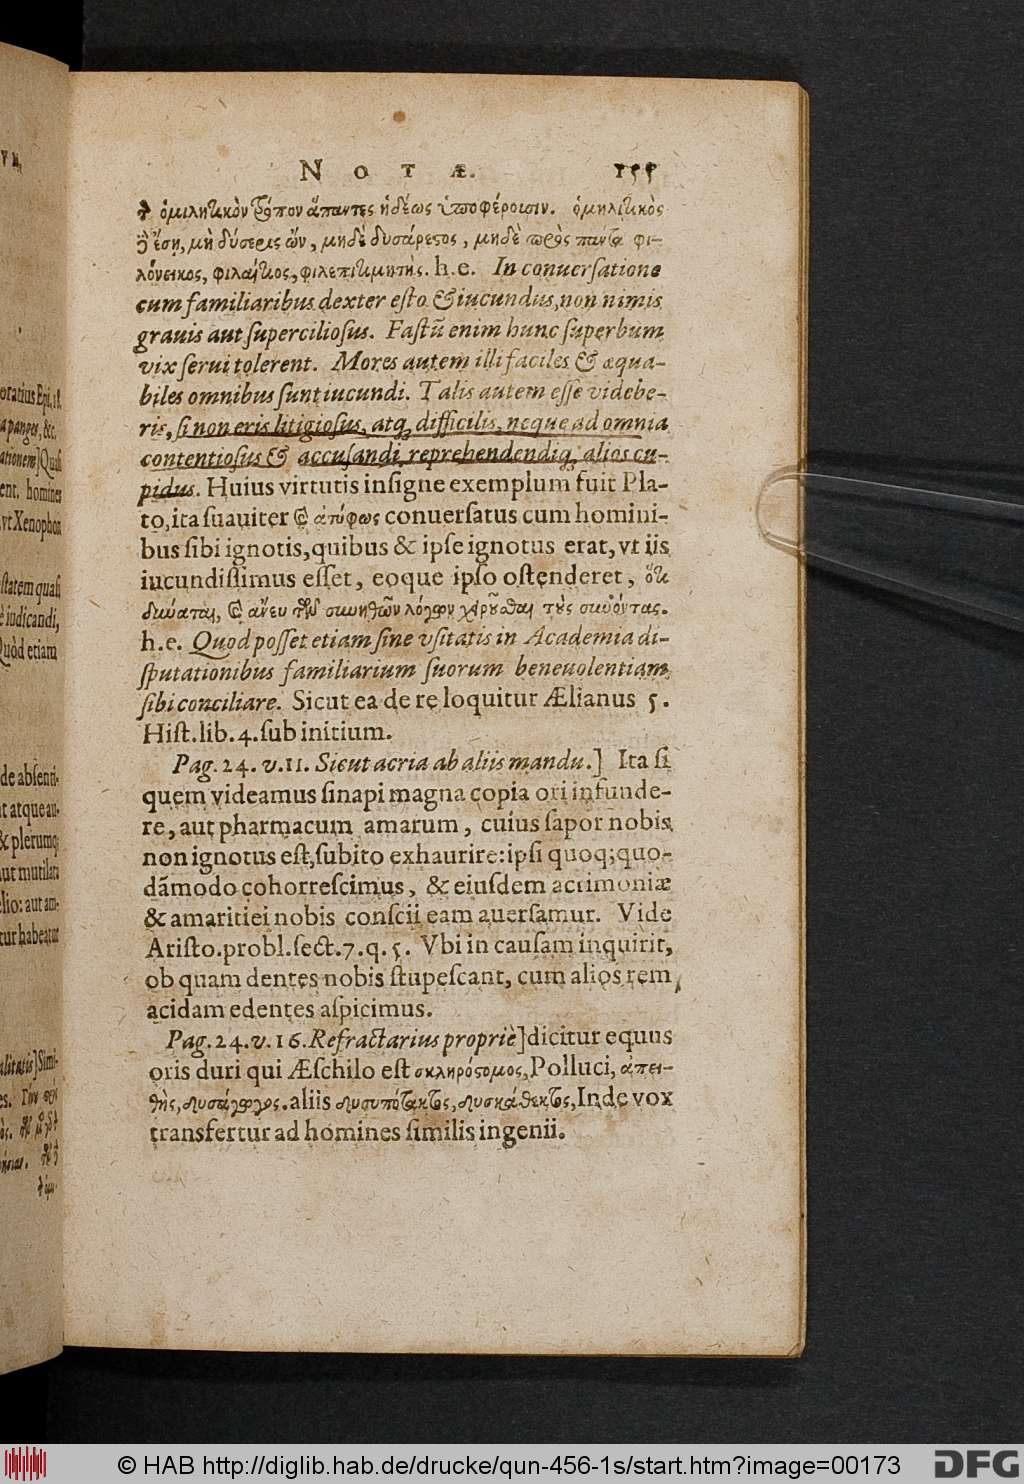 NOTÆ. 155
ὁμιλητικὸν τρόπον ἅπαντες ἡδέως ὑποφέρουσιν. ὁμιλητικὸς
δ' ἔσῃ, μὴ δύσερις ὢν, μηδὲ δυσάρεστος, μηδὲ πρὸς πάντα φι-
λόνεικος, φιλαίτιος, φιλεπιτιμητής. h.e. In conuersatione
cum familiaribus dexter esto & iucundus, non nimis
grauis aut superciliosus. Fastũ enim hunc superbum
vix serui tolerent. Mores autem illi faciles & æqua-
biles omnibus sunt iucundi. Talis autem esse videbe-
ris, si non eris litigiosus, atq; difficilis, neque ad omnia
contentiosus & accusandi, reprehendendiq; alios cu-
pidus. Huius virtutis insigne exemplum fuit Pla-
to, ita suauiter καὶ ἀτύφως conuersatus cum homini-
bus sibi ignotis, quibus & ipse ignotus erat, vt iis
iucundissimus esset, eoque ipso ostenderet, ὅτι
δύναται, καὶ ἄνευ τῶν συνήθων λόγων χειροῦσθαι τοὺς συνόντας.
h.e. Quod posset etiam sine vsitatis in Academia di-
sputationibus familiarium suorum beneuolentiam
sibi conciliare. Sicut ea de re loquitur Ælianus 5.
Hist. lib. 4. sub initium.
Pag. 24. v. 11. Sicut acria ab aliis mandu.] Ita si
quem videamus sinapi magna copia ori infunde-
re, aut pharmacum amarum, cuius sapor nobis
non ignotus est, subito exhaurire: ipsi quoq; quo-
dãmodo cohorrescimus, & eiusdem acrimoniæ
& amaritiei nobis conscii eam auersamur. Vide
Aristo. probl. sect. 7. q. 5. Vbi in causam inquirit,
ob quam dentes nobis stupescant, cum alios rem
acidam edentes aspicimus.
Pag. 24. v. 16. Refractarius propriè] dicitur equus
oris duri qui Æschilo est σκληρόστομος, Polluci, ἀπει-
θὴς, δυσάγωγος. aliis δυσυπότακτος, δυσκάθεκτος, Inde vox
transfertur ad homines similis ingenii.
VM,
oratius Epi. 18.
apanges, &c.
ationem] Quasi
ent. homines
, vt Xenophon
statem quasi
è iudicandi,
Quòd etiam
de absenti-
t atque au-
& plerumq;
aut mutilata
elio: aut am-
tur habeatur
alitatis] Simi-
© HAB http://diglib.hab.de/drucke/qun-456-1s/start.htm?image=00173
DFG